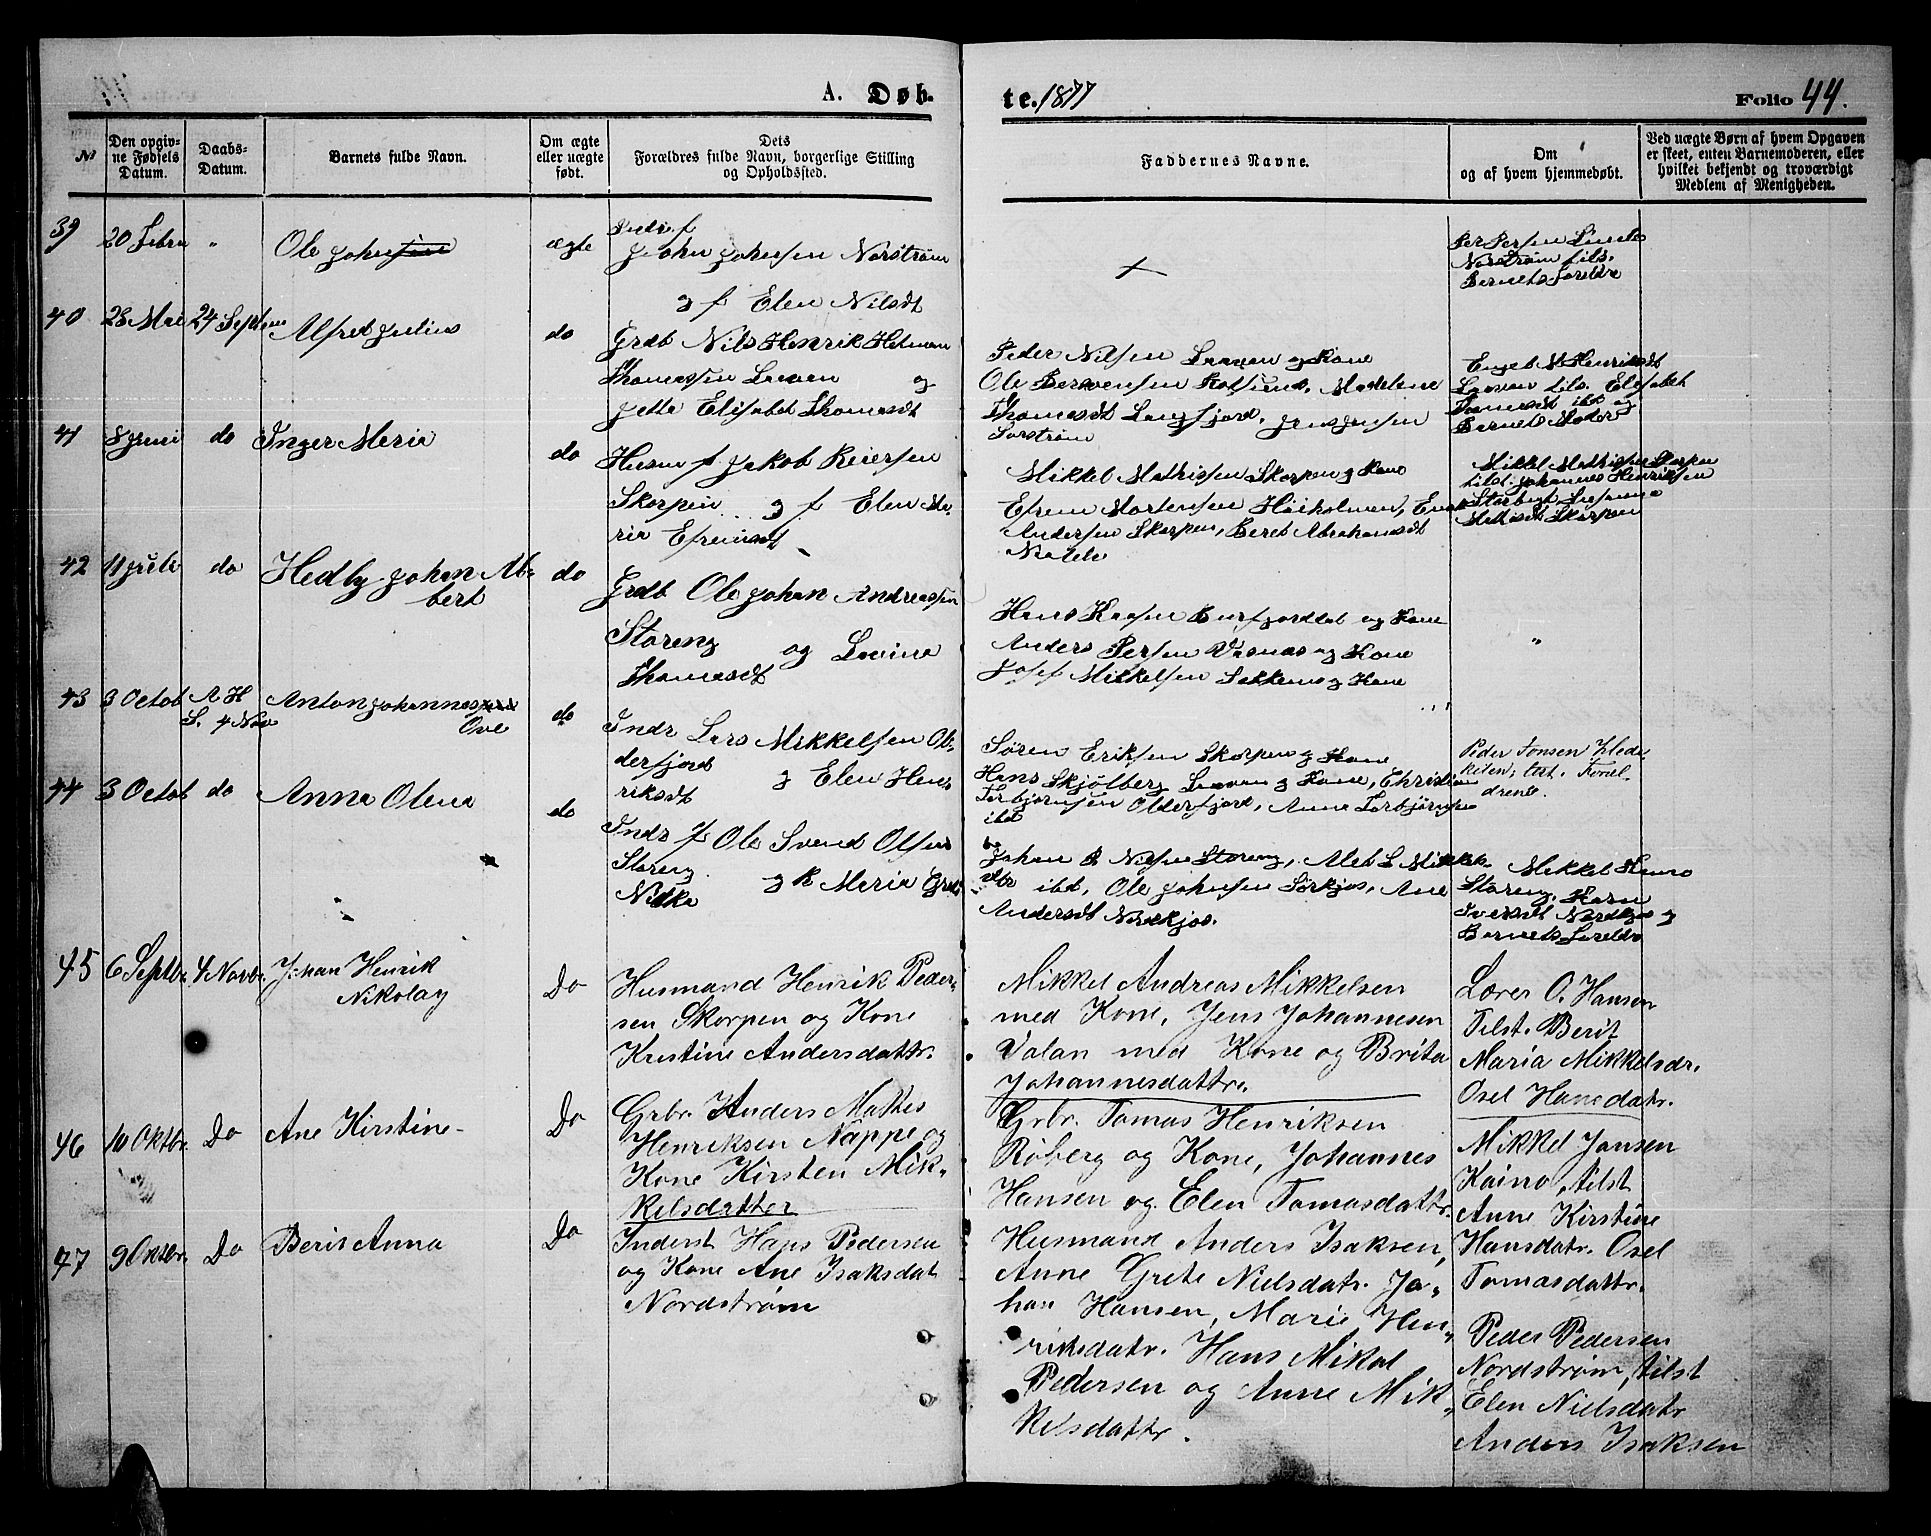 A. Døb-
te. 1877
Folio 44.
No
Den opgiv-
ne Fødsels
Datum.
Daabs-
Datum.
Barnets fulde Navn.
Om ægte
eller uægte
født.
Dets
Forældres fulde Navn, borgerlige Stilling
og Opholdssted.
Faddernes Navne.
Om
og af hvem hjemmedøbt.
Ved uægte Børn af hvem Opgaven
er skeet, enten Barnemoderen, eller
hvilket bekjendt og troværdigt
Medlem af Menigheden.
39
20 Febru
"
Ole Johnsine
ægte
John Johnsen Norstrøm
g f Elen Nilsdt
+
Per Persen
Norstrøm tils.
Bernets Foreldre
40
23 Mai
24 Septem
Alfret Julius
do
Grdb Nils Henrik Helman
Thomassen Laven og
Jette Elisabet Thomasdt
Peder Nilsen Laven og Kone
Ole Madelene
Thomasdt Langfjord, Jens Jensen
Sorstrøm
Henriksdt
Laven tils. Elisabet
Tomasdt ibt og
Bernets Moder
41
8 Juni
do
Inger Meria
do
Husm f Jakob Reiersen
Skorpen og f Elen Me-
ria Efreimsdt
Mikkel Mathissen Skorpen og Kone
Efrem Mortensen Høiholmen,
Andersen Skorpen, Beret Abrahamsdt
Mikkel Mathissen Skorpen
tils. Johannes Henriksen
Storbugt Susanna
Mathisdt Skorpen
42
11 Juli
do
Hedley Johan Al-
bert
do
Grdb Ole Johan Andreassen
Storeng og Lovine
Thomasdt
Hans Kaasen Burfjordbot og Kone
Anders Persen Vasnes og Kone
Josef Mikkelsen Sekkemo og Kone
"
43
3 Octob
A H
S. 4 Nov
Anton Johannes
Ove
do
Indr Lars Mikkelsen Ol-
derfjord og Elen Hen-
riksdt
Søren Eriksen Skorpen og Kone
Hans Skjølberg Laven og Kone, Christian
Torbjørnsen Olderfjord, Anne Torbjørnsen
ibt
Peder Tonsen Klede-
kilen, test. Forel-
drene.
44
3 Octob
do
Anna Olena
do
Indr f Ole Svend Olsen
Storeng og k Meria Grete
Nilke
Johan P. Nilsen Storeng, Alet L Mikkels-
dtr ibt, Ole Johnsen Sørkjos, Ane
Andersdt Nordkjos.
Mikkel Heno
Storeng, Karen
Iversdt Nordkjos og
Bernets Foreldre
45
6 Septbr.
4 Novbr.
Johan Henrik
Nikolay
Do
Husmand Henrik Peder-
sen Skorpen og Kone
Kristine Andersdattr.
Mikkel Andreas Mikkelsen
med Kone, Jens Johannesen
Valan med Kone og Brita
Johannesdattr.
Lærer O. Hansen
Tilst. Berit
Maria Mikkelsdr.
Osel Hansdatr.
46
10 Oktbr.
Do
Ane Kirstine
Do
Grbr. Anders Mattes
Henriksen Nappe og
Kone Kirsten Mik-
kelsdatter
Grbr. Tomas Henriksen
Røberg og Kone, Johannes
Hansen og Elen Tomasdattr.
Mikkel Jansen
Kaino, tilst
Anne Kirstine
Hansdatr. Osel
Tomasdattr.
47
9 Oktbr.
Do
Berit Anna
Do
Inderst Hans Pedersen
og Kone Ane Isaksdat
Nordstrøm
Husmand Anders Isaksen,
Anne Grete Nielsdatr. Jo-
han Hansen, Marie Hen-
riksdatr. Hans Mikal
Pedersen og Anne Mik-
kelsdattr.
Peder Pedersen
Nordstrøm, tilst
Elen Nielsdatr
Anders Isaksen